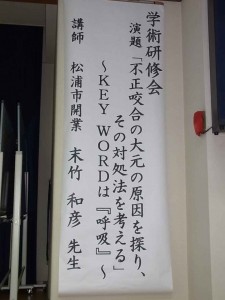 学術研修会
演題「不正咬合の大元の原因を探り、
その対処法を考える」
～KEY WORDは『呼吸』～
講師 松浦市開業 末竹 和彦 先生